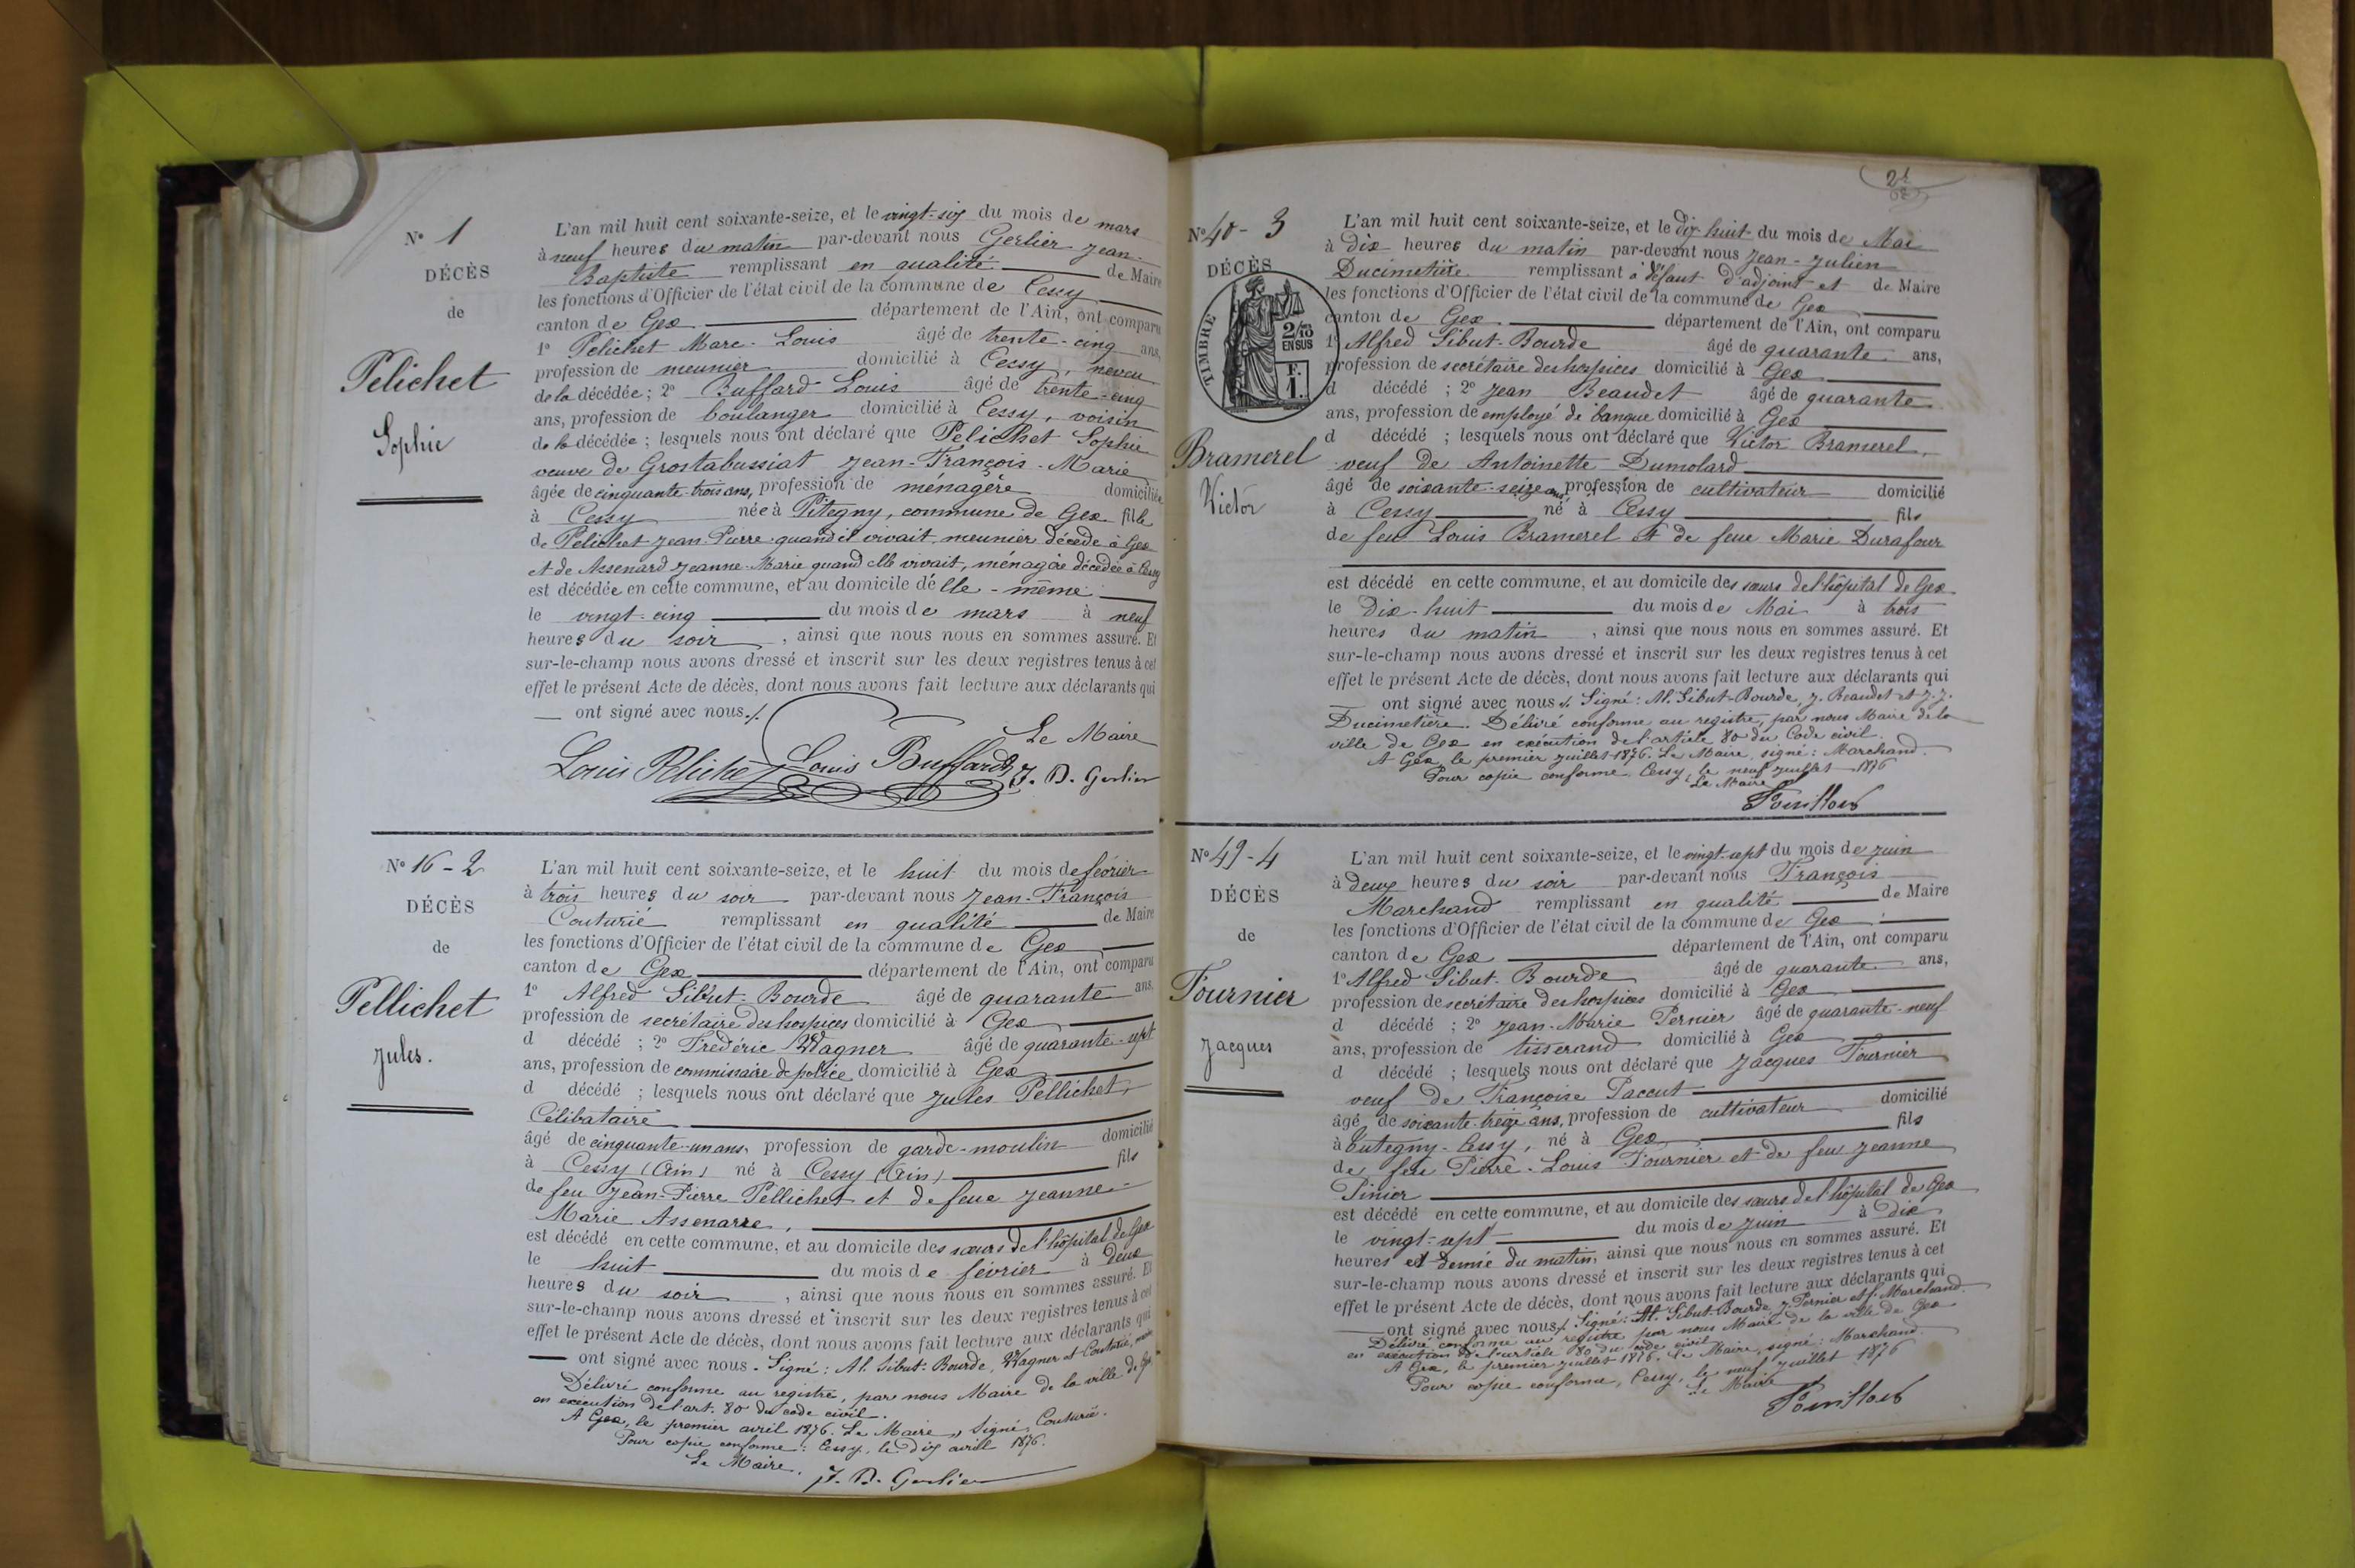 N° 1
DÉCÈS
de
Pelichet
Sophie
L'an mil huit cent soixante-seize, et le vingt-six du mois de mars
à neuf heures du matin par-devant nous Gerlier Jean-
Baptiste remplissant en qualité de Maire
les fonctions d'Officier de l'état civil de la commune de Cessy
canton de Gex département de l'Ain, ont comparu
1° Pelichet Marc-Louis âgé de trente-cinq ans,
profession de meunier domicilié à Cessy, neveu
de la décédée ; 2° Buffard Louis âgé de trente-cinq
ans, profession de boulanger domicilié à Cessy, voisin
de la décédée ; lesquels nous ont déclaré que Pelichet Sophie
veuve de Grostabussiat Jean-François-Marie
âgée de cinquante-trois ans, profession de ménagère domiciliée
à Cessy née à Pitegny, commune de Gex fille
de Pelichet Jean-Pierre quand il vivait, meunier décédé à Gex
et de Assenard Jeanne-Marie quand elle vivait, ménagère décédée à Cessy
est décédée en cette commune, et au domicile d'elle-même
le vingt-cinq du mois de mars à neuf
heures du soir, ainsi que nous nous en sommes assuré. Et
sur-le-champ nous avons dressé et inscrit sur les deux registres tenus à cet
effet le présent Acte de décès, dont nous avons fait lecture aux déclarants qui
ont signé avec nous./.
Le Maire
Louis Pelichet Louis Buffard J. B. Gerlier
N° 16-2
DÉCÈS
de
Pellichet
Jules.
L'an mil huit cent soixante-seize, et le huit du mois de février
à trois heures du soir par-devant nous Jean-François
Couturié remplissant en qualité de Maire
les fonctions d'Officier de l'état civil de la commune de Gex
canton de Gex département de l'Ain, ont comparu
1° Alfred Sibut-Bourde âgé de quarante ans,
profession de secrétaire des hospices domicilié à Gex
d décédé ; 2° Frédéric Wagner âgé de quarante-sept
ans, profession de commissaire de police domicilié à Gex
d décédé ; lesquels nous ont déclaré que Jules Pellichet,
Célibataire
âgé de cinquante-un ans, profession de garde-moulin domicilié
à Cessy (Ain) né à Cessy (Ain) fils
de feu Jean-Pierre Pellichet et de feue Jeanne-
Marie Assenarre,
est décédé en cette commune, et au domicile des sœurs de l'hôpital de Gex
le huit du mois de février à deux
heures du soir, ainsi que nous nous en sommes assuré. Et
sur-le-champ nous avons dressé et inscrit sur les deux registres tenus à cet
effet le présent Acte de décès, dont nous avons fait lecture aux déclarants qui
ont signé avec nous. Signé : Al. Sibut-Bourde, Wagner et Couturié, maire
Délivré conforme au registre, par nous Maire de la ville de Gex,
en exécution de l'art. 80 du code civil.
A Gex, le premier avril 1876. Le Maire, Signé, Couturié.
Pour copie conforme : Cessy, le dix avril 1876.
Le Maire, J. B. Gerlier
N° 40-3
DÉCÈS
TIMBRE
2/10
EN SUS
F.
1.
Bramerel
Victor
L'an mil huit cent soixante-seize, et le dix-huit du mois de Mai
à dix heures du matin par-devant nous Jean-Julien
Ducimetière remplissant à défaut d'adjoint et de Maire
les fonctions d'Officier de l'état civil de la commune de Gex
canton de Gex département de l'Ain, ont comparu
1° Alfred Sibut-Bourde âgé de quarante ans,
profession de secrétaire des hospices domicilié à Gex
d décédé ; 2° Jean Beaudet âgé de quarante
ans, profession de employé de banque domicilié à Gex
d décédé ; lesquels nous ont déclaré que Victor Bramerel,
veuf de Antoinette Dumolard
âgé de soixante-seize ans, profession de cultivateur domicilié
à Cessy né à Cessy fils
de feu Louis Bramerel et de feue Marie Durafour
est décédé en cette commune, et au domicile des sœurs de l'hôpital de Gex
le Dix-huit du mois de Mai à trois
heures du matin, ainsi que nous nous en sommes assuré. Et
sur-le-champ nous avons dressé et inscrit sur les deux registres tenus à cet
effet le présent Acte de décès, dont nous avons fait lecture aux déclarants qui
ont signé avec nous./. Signé : Al. Sibut-Bourde, J. Beaudet et J. J.
Ducimetière. Délivré conforme au registre, par nous Maire de la
ville de Gex en exécution de l'article 80 du Code civil.
A Gex, le premier juillet 1876. Le Maire, signé : Marchand.
Pour copie conforme, Cessy, le neuf juillet 1876
Le Maire
N° 49-4
DÉCÈS
de
Fournier
Jacques
L'an mil huit cent soixante-seize, et le vingt-sept du mois de juin
à deux heures du soir par-devant nous François
Marchand remplissant en qualité de Maire
les fonctions d'Officier de l'état civil de la commune de Gex
canton de Gex département de l'Ain, ont comparu
1° Alfred Sibut-Bourde âgé de quarante ans,
profession de secrétaire des hospices domicilié à Gex
d décédé ; 2° Jean-Marie Pernier âgé de quarante-neuf
ans, profession de tisserand domicilié à Gex
d décédé ; lesquels nous ont déclaré que Jacques Fournier
veuf de Françoise Paccut
âgé de soixante-treize ans, profession de cultivateur domicilié
à Tutegny-Cessy, né à Gex fils
de feu Pierre-Louis Fournier et de feu Jeanne
Pinier
est décédé en cette commune, et au domicile des sœurs de l'hôpital de Gex
le vingt-sept du mois de juin à Dix
heures et demie du matin, ainsi que nous nous en sommes assuré. Et
sur-le-champ nous avons dressé et inscrit sur les deux registres tenus à cet
effet le présent Acte de décès, dont nous avons fait lecture aux déclarants qui
ont signé avec nous./. Signé : Al. Sibut-Bourde, J. Pernier et f. Marchand.
Délivré conforme au registre par nous Maire de la ville de Gex
en exécution de l'article 80 du code civil
A Gex, le premier juillet 1876. Le Maire, signé : Marchand.
Pour copie conforme, Cessy, le neuf juillet 1876
Le Maire